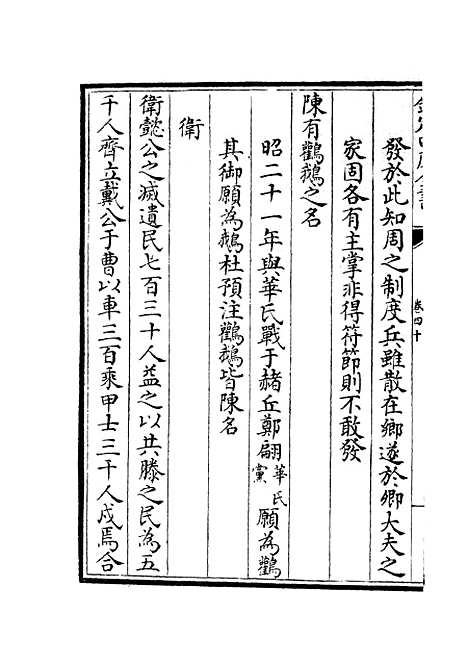 發於此知周之制度兵雖散在鄉遂於卿大夫之
家固各有主掌非得符節則不敢發
陳有鸛鵝之名
昭二十一年與華氏戰于赭丘鄭翩華氏黨願為鸛
其御願為鵝杜預注鸛鵝皆陳名
衛
衛懿公之滅遺民七百三十人益之以共滕之民為五
千人齊立戴公于曹以車三百乘甲士三千人戍焉合
卷四十